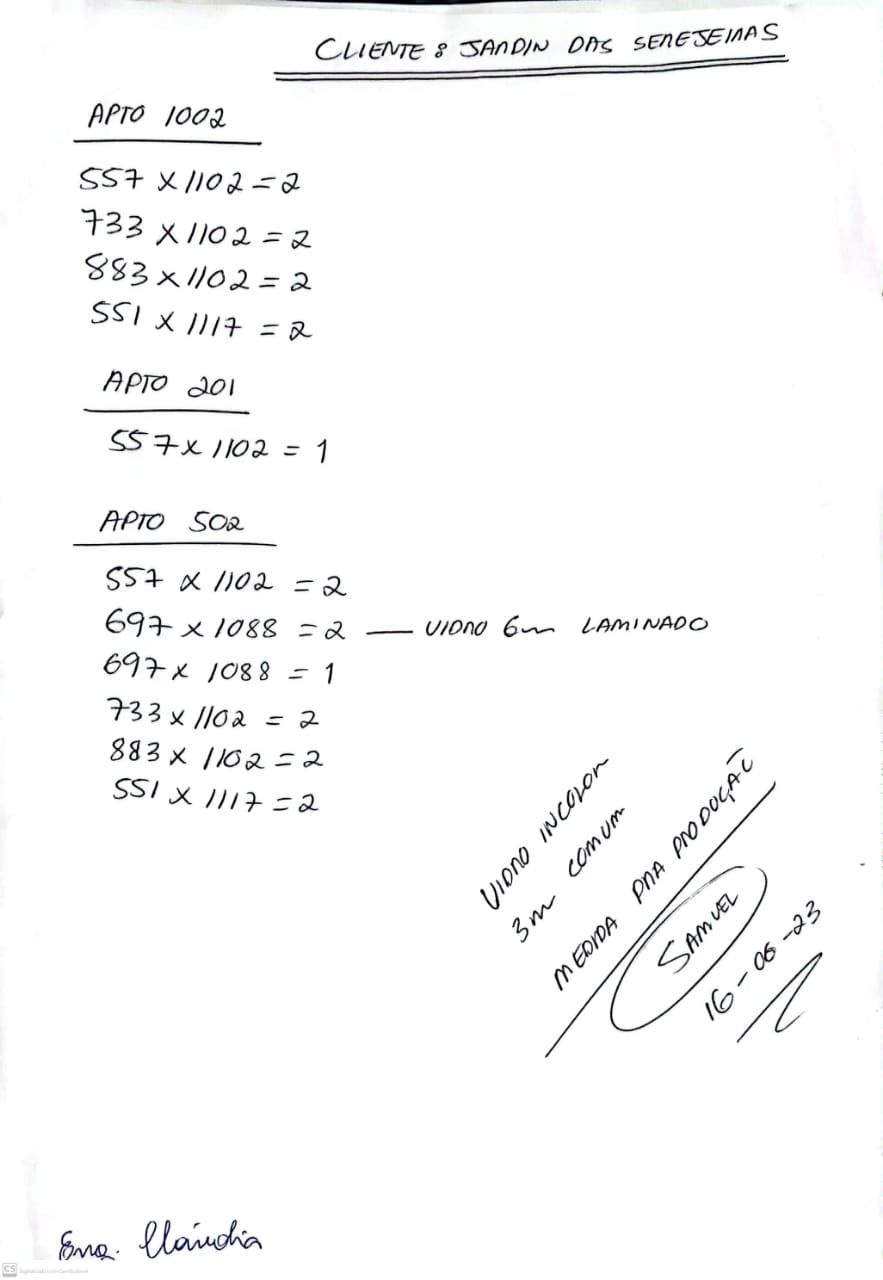 CLIENTE : JARDIN DAS SEREJEIRAS
APTO 1002
557 x 1102 = 2
733 x 1102 = 2
883 x 1102 = 2
551 x 1117 = 2
APTO 201
557 x 1102 = 1
APTO 502
557 x 1102 = 2
697 x 1088 = 2 — VIDRO 6m LAMINADO
697 x 1088 = 1
733 x 1102 = 2
883 x 1102 = 2
551 x 1117 = 2
VIDRO INCOLOR
3m COMUM
MEDIDA PRA PRODUÇÃO
SAMUEL
16-06-23
Enga. Cláudia
CS Digitalizado com CamScanner